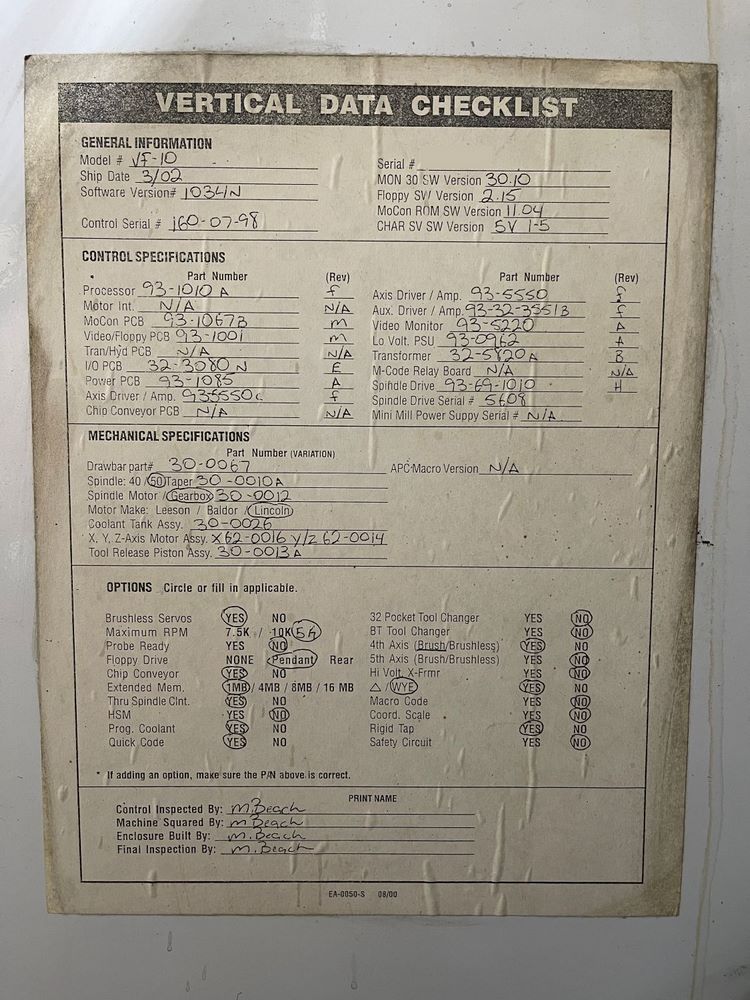 VERTICAL DATA CHECKLIST
GENERAL INFORMATION
Model # VF-10
Ship Date 3/02
Software Version# 1034N
Control Serial # j60-07-98
Serial #
MON 30 SW Version 30.10
Floppy SW Version 2.15
MoCon ROM SW Version 11.04
CHAR SV SW Version SV 1-5
CONTROL SPECIFICATIONS
Part Number (Rev)
Processor 93-1010 A f
Motor Int. N/A N/A
MoCon PCB 93-1067B m
Video/Floppy PCB 93-1001 m
Tran/Hyd PCB N/A N/A
I/O PCB 32-3080 N E
Power PCB 93-1085 A
Axis Driver / Amp. 935550c f
Chip Conveyor PCB N/A N/A
Part Number (Rev)
Axis Driver / Amp. 93-5550
Aux. Driver / Amp. 93-32-3551B f
Video Monitor 93-5220 A
Lo Volt. PSU 93-0962 A
Transformer 32-5820A B
M-Code Relay Board N/A N/A
Spindle Drive 93-69-1010 H
Spindle Drive Serial # 5608
Mini Mill Power Suppy Serial # N/A
MECHANICAL SPECIFICATIONS
Part Number (VARIATION)
Drawbar part# 30-0067
APC Macro Version N/A
Spindle: 40 / 50 Taper 30-0010A
Spindle Motor / Gearbox 30-0012
Motor Make: Leeson / Baldor / Lincoln
Coolant Tank Assy. 30-0026
X, Y, Z-Axis Motor Assy. X62-0016 Y/Z 62-0014
Tool Release Piston Assy. 30-0013A
OPTIONS Circle or fill in applicable.
Brushless Servos YES NO
Maximum RPM 7.5K / 10K
Probe Ready YES NO
Floppy Drive NONE Pendant Rear
Chip Conveyor YES NO
Extended Mem. 1MB / 4MB / 8MB / 16 MB
Thru Spindle Clnt. YES NO
HSM YES NO
Prog. Coolant YES NO
Quick Code YES NO
32 Pocket Tool Changer YES NO
BT Tool Changer YES NO
4th Axis (Brush/Brushless) YES NO
5th Axis (Brush/Brushless) YES NO
Hi Volt. X-Frmr YES NO
△ / WYE YES NO
Macro Code YES NO
Coord. Scale YES NO
Rigid Tap YES NO
Safety Circuit YES NO
* If adding an option, make sure the P/N above is correct.
PRINT NAME
Control Inspected By: M.Beach
Machine Squared By: M Beach
Enclosure Built By: M. Beach
Final Inspection By: M. Beach
EA-0050-S 08/00